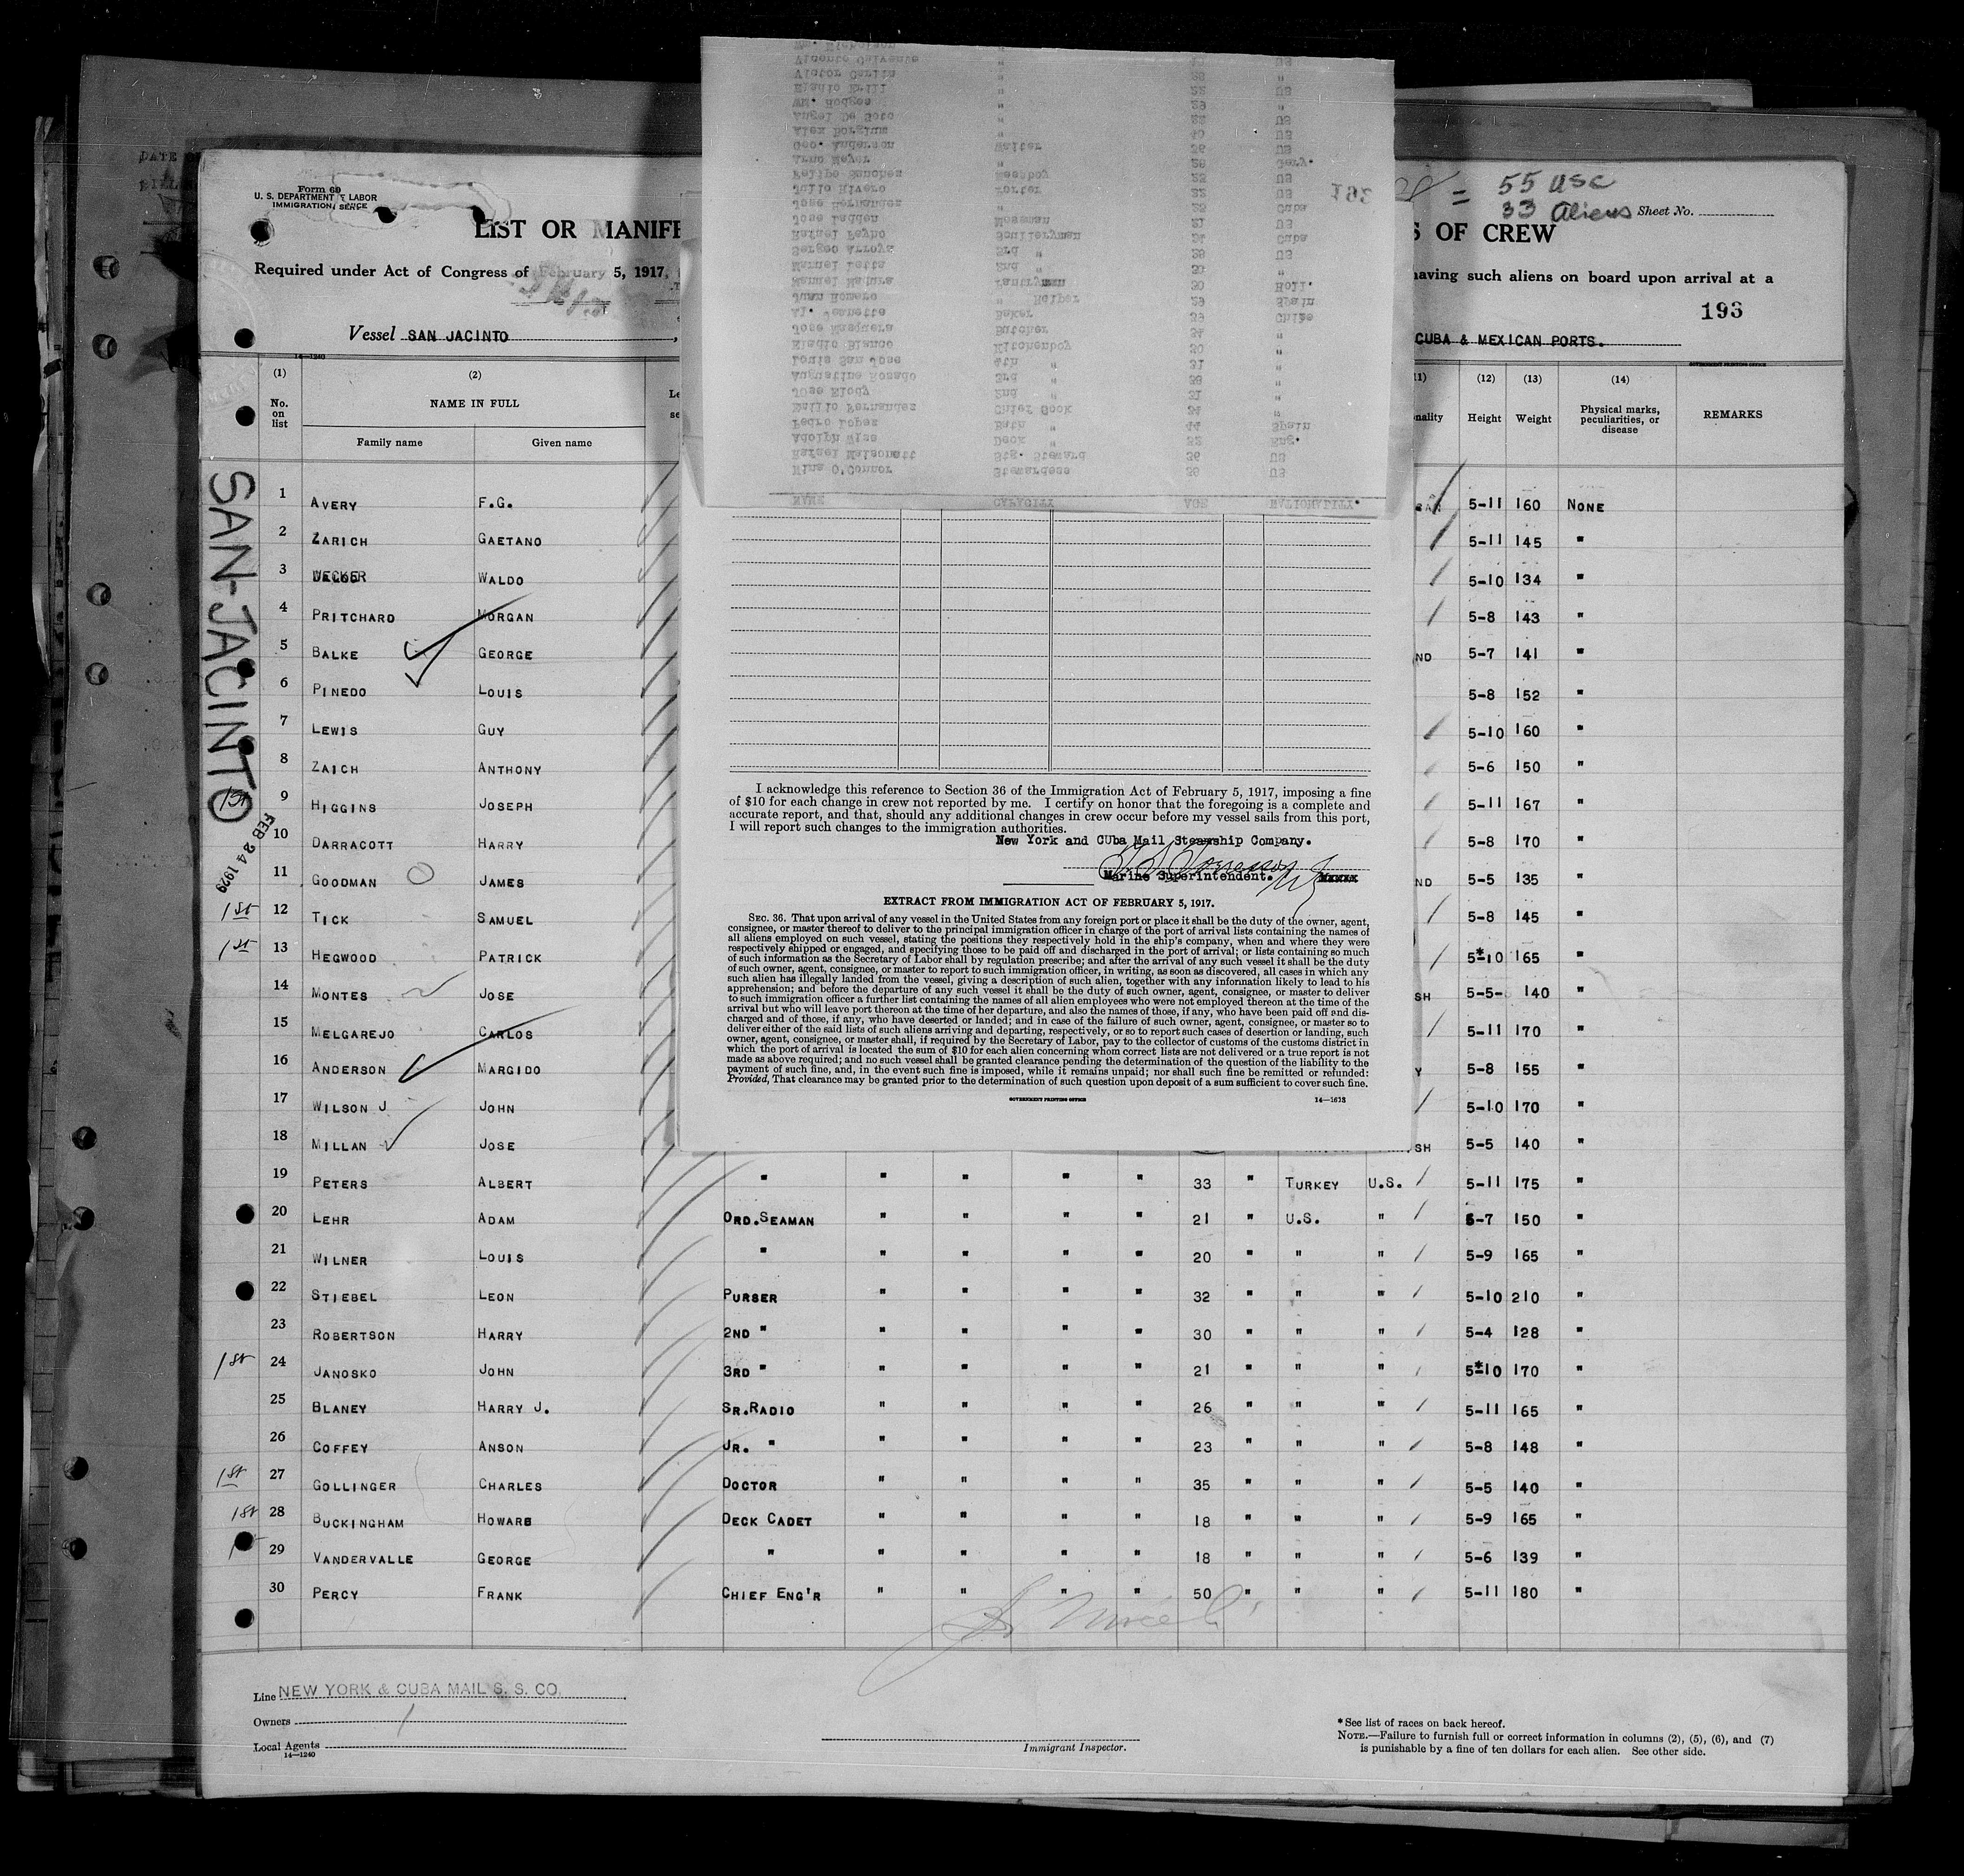 Form 69
U. S. DEPARTMENT OF LABOR
IMMIGRATION SERVICE
LIST OR MANIFE
S OF CREW
= 55 USC
33 Aliens Sheet No.
Required under Act of Congress of February 5, 1917,
having such aliens on board upon arrival at a
193
Vessel SAN JACINTO
CUBA & MEXICAN PORTS.
14—1240
GOVERNMENT PRINTING OFFICE
(1) (2) (12) (13) (14)
No. on list NAME IN FULL Height Weight Physical marks, peculiarities, or disease REMARKS
Family name Given name
SAN-JACINTO
FEB 24 1929
1 AVERY F.G. 5-11 160 NONE
2 ZARICH GAETANO 5-11 145 "
3 WALDO 5-10 134 "
4 PRITCHARD MORGAN 5-8 143 "
5 BALKE GEORGE ND 5-7 141 "
6 PINEDO LOUIS 5-8 152 "
7 LEWIS GUY 5-10 160 "
8 ZAICH ANTHONY 5-6 150 "
9 HIGGINS JOSEPH 5-11 167 "
10 DARRACOTT HARRY 5-8 170 "
11 GOODMAN JAMES ND 5-5 135 "
1st 12 TICK SAMUEL 5-8 145 "
1st 13 HEGWOOD PATRICK 5*10 165 "
14 MONTES JOSE SH 5-5- 140 "
15 MELGAREJO CARLOS 5-11 170 "
16 ANDERSON MARGIDO Y 5-8 155 "
17 WILSON J JOHN 5-10 170 "
18 MILLAN JOSE SH 5-5 140 "
19 PETERS ALBERT " " " " " 33 " TURKEY U.S. 5-11 175 "
20 LEHR ADAM ORD.SEAMAN " " " " 21 " U.S. " 5-7 150 "
21 WILNER LOUIS " " " " " 20 " " " 5-9 165 "
22 STIEBEL LEON PURSER " " " " 32 " " " 5-10 210 "
23 ROBERTSON HARRY 2ND " " " " " 30 " " " 5-4 128 "
1st 24 JANOSKO JOHN 3RD " " " " " 21 " " " 5*10 170 "
25 BLANEY HARRY J. SR.RADIO " " " " 26 " " " 5-11 165 "
26 COFFEY ANSON JR. " " " " " 23 " " " 5-8 148 "
1st 27 GOLLINGER CHARLES DOCTOR " " " " 35 " " " 5-5 140 "
1st 28 BUCKINGHAM HOWARD DECK CADET " " " " 18 " " " 5-9 165 "
1st 29 VANDERVALLE GEORGE " " " " " 18 " " " 5-6 139 "
30 PERCY FRANK CHIEF ENG'R " " " " 50 " " " 5-11 180 "
NAME CAPACITY AGE NATIONALITY.
Nina O'Connor Stewardess 38 US
Rafael Maisonett Stg. Steward 36 US
Adolph Wise Deck " 32 Eng.
Pedro Lopez Bath " 44 Spain
Chief Cook 34 "
Jose Elody 2nd " 31 "
Augustine Rosado 3rd " 38 "
Louis San Jose 4th " 31 "
Eladio Blanco Kitchenboy 30 "
Jose Mosquera Butcher 34 "
Baker 39 Chile
Juan Romero " Helper 29 Spain
Manuel Madura Pantryman 30 Holl.
Manuel 2nd "
Sergeo Arroya 3rd " 38 US
Rafael Feyho Sculleryman 24 Cuba
Jose Ladden Messman 21 US
Jose Hernandez " 25 Cuba
Julio Rivero Porter 22 US
Felipe Sanchez Messboy 23 US
Arno Meyer " 26 Gery.
Geo. Anderson Waiter 36 US
Alex Borglum " 40 US
Angel De Soto " 22 US
Wm. Hodges " 29 "
" 22 US
Victor " 28 "
" US
Wm. Nicholson
I acknowledge this reference to Section 36 of the Immigration Act of February 5, 1917, imposing a fine
of $10 for each change in crew not reported by me. I certify on honor that the foregoing is a complete and
accurate report, and that, should any additional changes in crew occur before my vessel sails from this port,
I will report such changes to the immigration authorities.
New York and CUba Mail Steamship Company.
Marine Superintendent.
EXTRACT FROM IMMIGRATION ACT OF FEBRUARY 5, 1917.
SEC. 36. That upon arrival of any vessel in the United States from any foreign port or place it shall be the duty of the owner, agent,
consignee, or master thereof to deliver to the principal immigration officer in charge of the port of arrival lists containing the names of
all aliens employed on such vessel, stating the positions they respectively hold in the ship's company, when and where they were
respectively shipped or engaged, and specifying those to be paid off and discharged in the port of arrival; or lists containing so much
of such information as the Secretary of Labor shall by regulation prescribe; and after the arrival of any such vessel it shall be the duty
of such owner, agent, consignee, or master to report to such immigration officer, in writing, as soon as discovered, all cases in which any
such alien has illegally landed from the vessel, giving a description of such alien, together with any information likely to lead to his
apprehension; and before the departure of any such vessel it shall be the duty of such owner, agent, consignee, or master to deliver
to such immigration officer a further list containing the names of all alien employees who were not employed thereon at the time of the
arrival but who will leave port thereon at the time of her departure, and also the names of those, if any, who have been paid off and dis-
charged and of those, if any, who have deserted or landed; and in case of the failure of such owner, agent, consignee, or master so to
deliver either of the said lists of such aliens arriving and departing, respectively, or so to report such cases of desertion or landing, such
owner, agent, consignee, or master shall, if required by the Secretary of Labor, pay to the collector of customs of the customs district in
which the port of arrival is located the sum of $10 for each alien concerning whom correct lists are not delivered or a true report is not
made as above required; and no such vessel shall be granted clearance pending the determination of the question of the liability to the
payment of such fine, and, in the event such fine is imposed, while it remains unpaid; nor shall such fine be remitted or refunded:
Provided, That clearance may be granted prior to the determination of such question upon deposit of a sum sufficient to cover such fine.
GOVERNMENT PRINTING OFFICE 14—1618
Line NEW YORK & CUBA MAIL S. S. CO.
Owners
Local Agents
14—1240
Immigrant Inspector.
* See list of races on back hereof.
NOTE.—Failure to furnish full or correct information in columns (2), (5), (6), and (7)
is punishable by a fine of ten dollars for each alien. See other side.